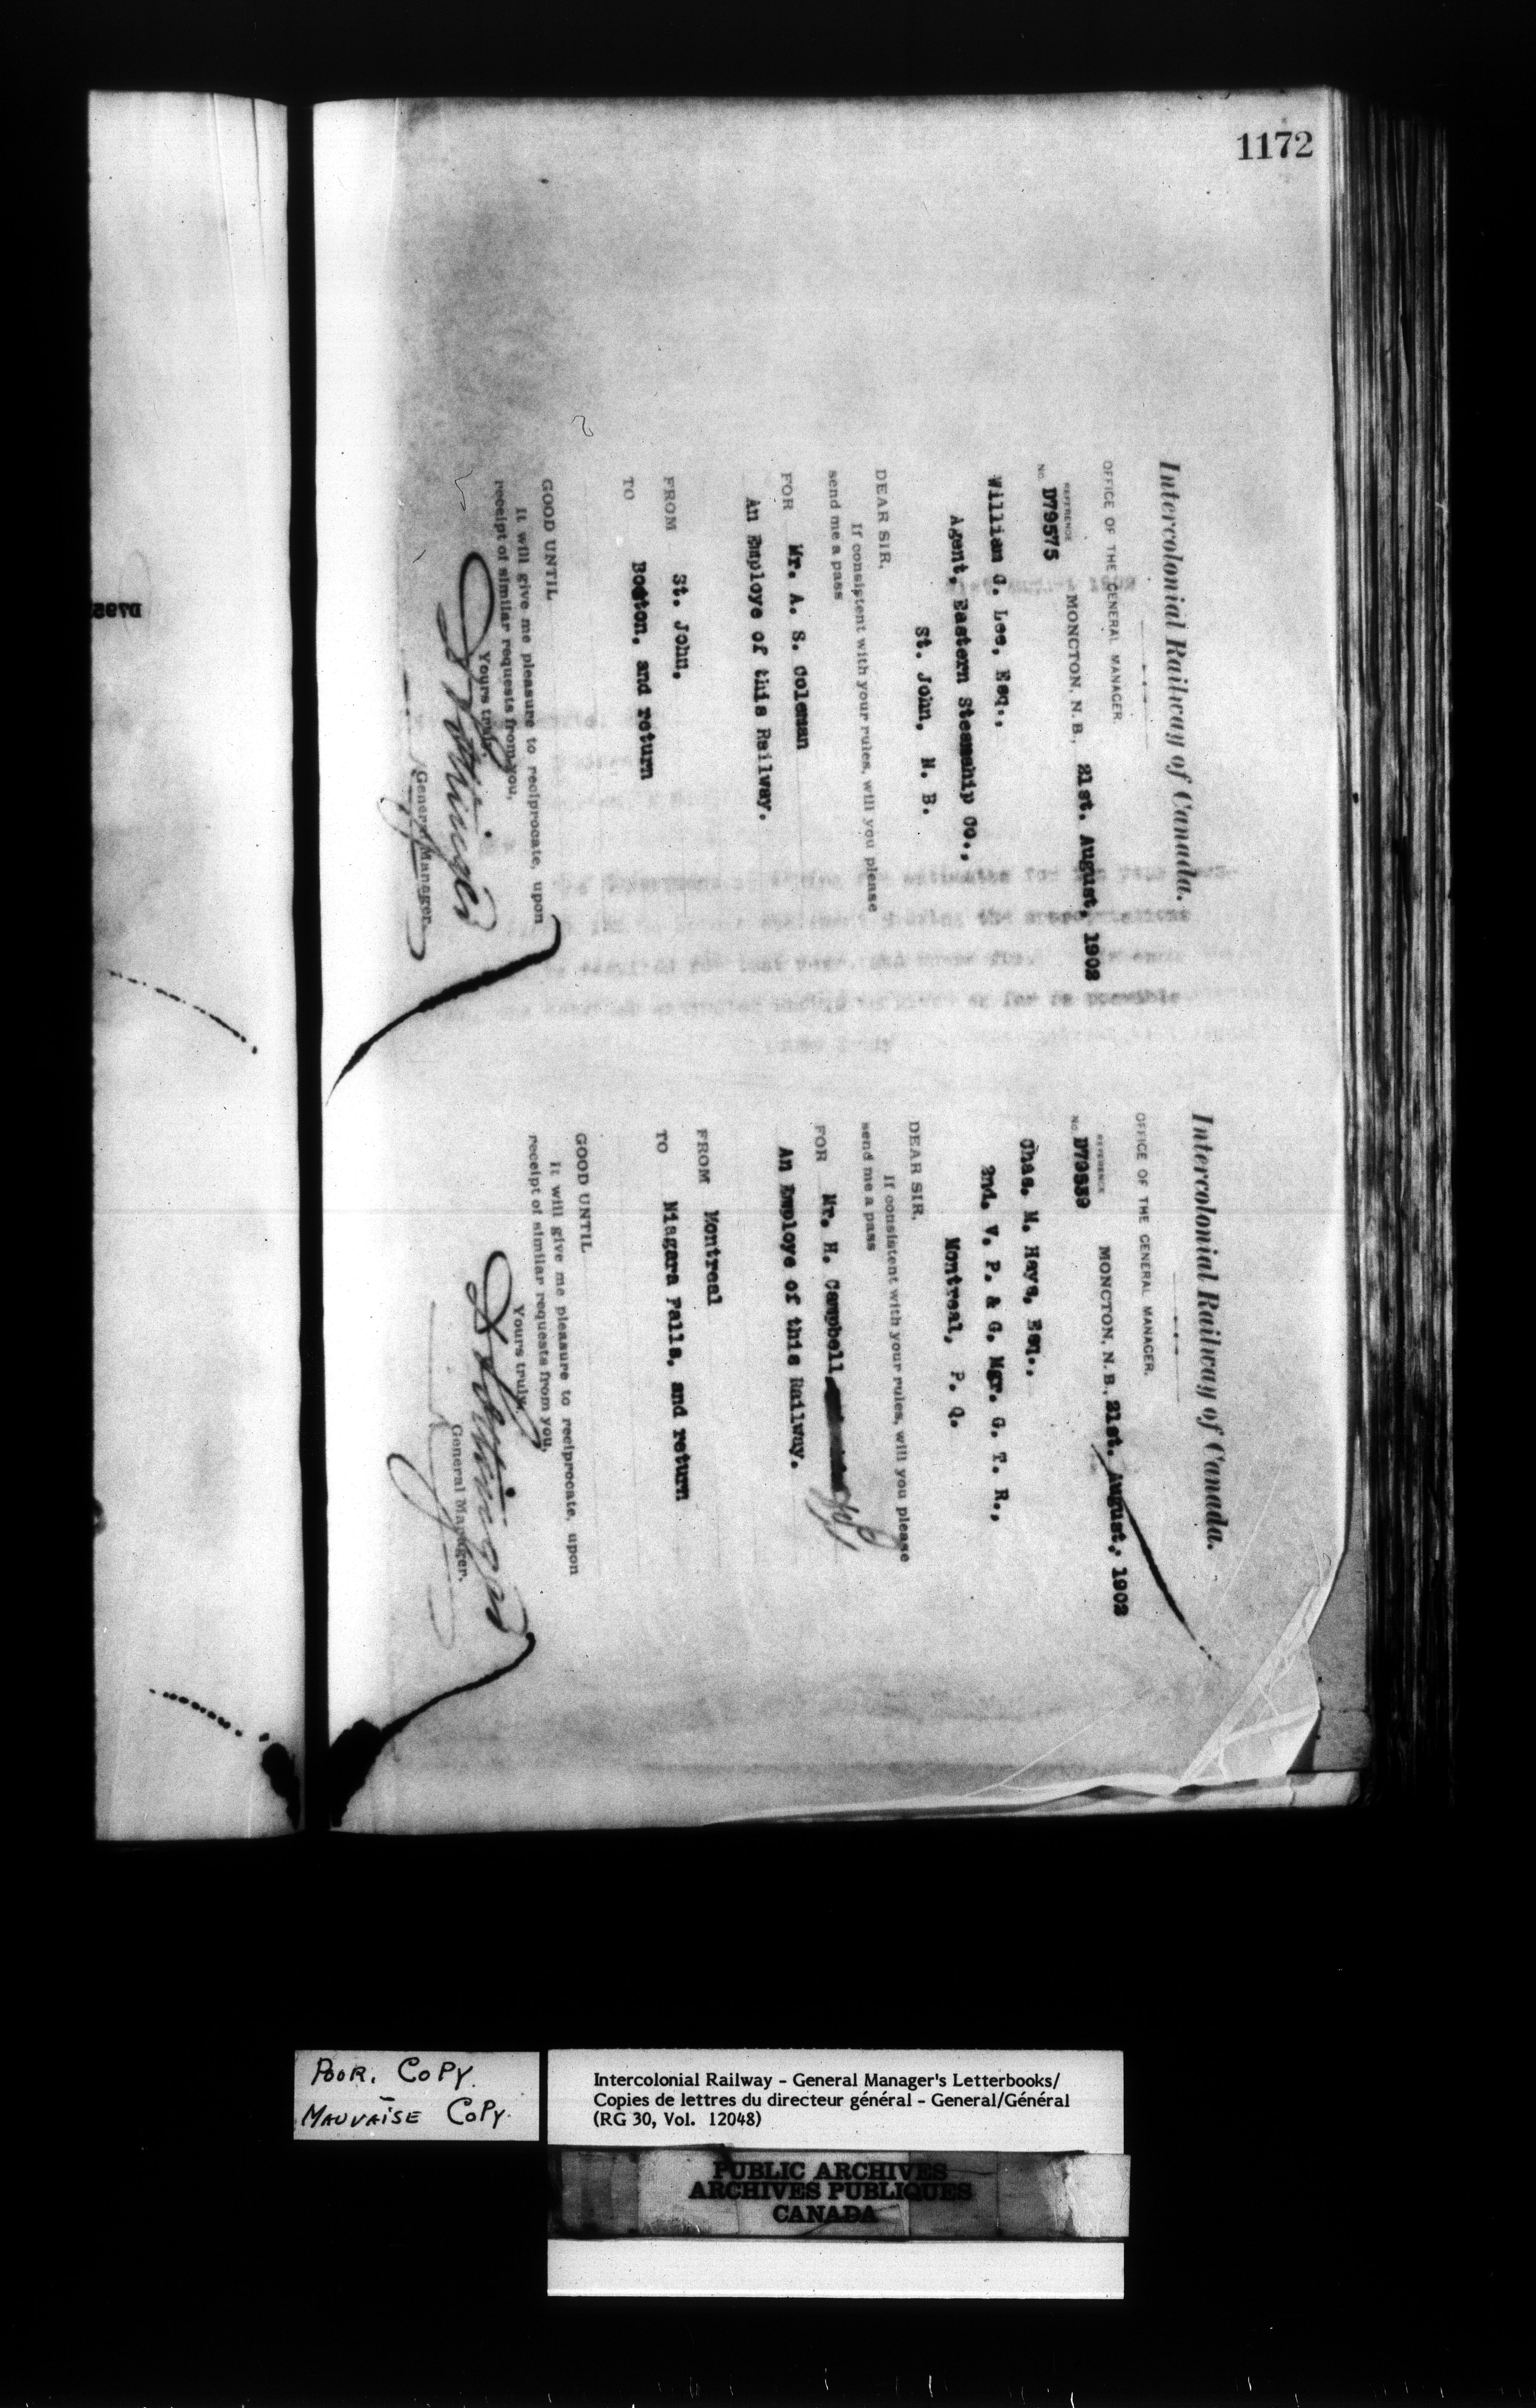 1172
Intercolonial Railway of Canada.
OFFICE OF THE GENERAL MANAGER.
REFERENCE
No. D79575
MONCTON, N. B., 21st. August, 1902
William G. Lee, Esq.,
Agent, Eastern Steamship Co.,
St. John, N. B.
DEAR SIR,
If consistent with your rules, will you please
send me a pass
FOR Mr. A. S. Coleman
An Employe of this Railway.
FROM St. John,
TO Boston, and return
GOOD UNTIL
It will give me pleasure to reciprocate, upon
receipt of similar requests from you.
Yours truly,
General Manager.
Intercolonial Railway of Canada.
OFFICE OF THE GENERAL MANAGER.
REFERENCE
No.
MONCTON, N. B., 21st. August, 1902
Chas. M. Hays, Esq.,
2nd. V. P. & G. Mgr. G. T. R.,
Montreal, P. Q.
DEAR SIR,
If consistent with your rules, will you please
send me a pass
FOR Mr. H. Campbell
An Employe of this Railway.
FROM Montreal
TO Niagara Falls, and return
GOOD UNTIL
It will give me pleasure to reciprocate, upon
receipt of similar requests from you.
Yours truly,
General Manager.
POOR. COPY.
MAUVAISE COPY.
Intercolonial Railway - General Manager's Letterbooks/
Copies de lettres du directeur général - General/Général
(RG 30, Vol. 12048)
PUBLIC ARCHIVES
ARCHIVES PUBLIQUES
CANADA